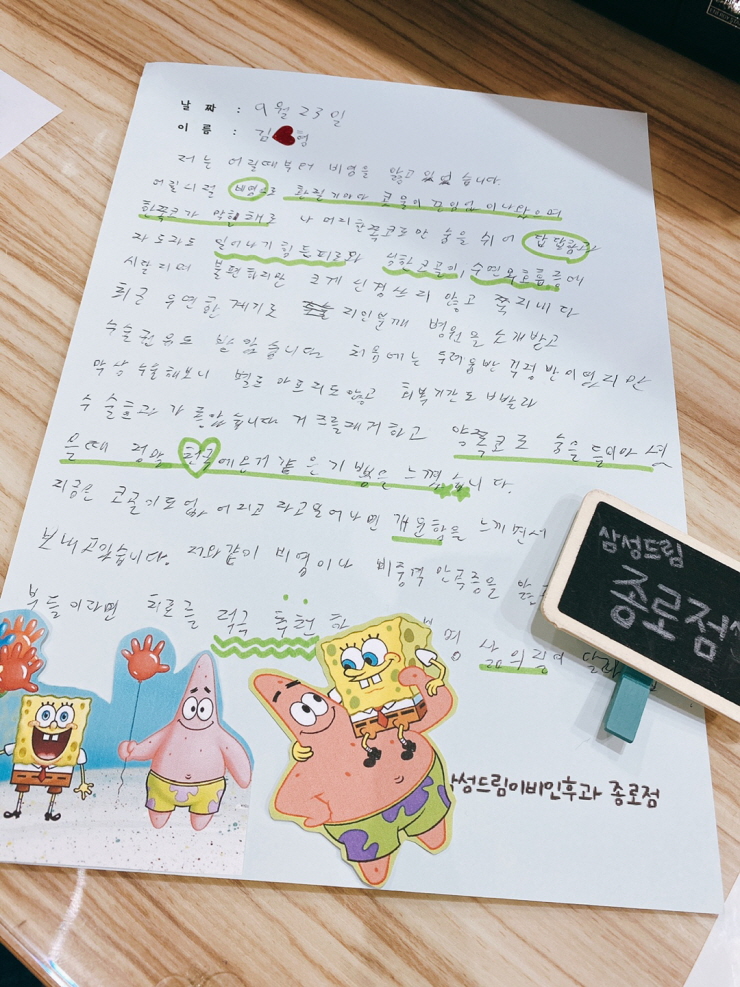 날 짜 : 9월 23일
이 름 : 김 영
저는 어릴때부터 비염을 앓고 있었습니다.
어릴시절 비염으로 환절기마다 콧물이 끊임없이 나왔으며
한쪽코가 막힌채로 나머지한쪽코로만 숨을 쉬어 답답함과
자도자도 일어나기 힘든피로와 심한코골이, 수면무호흡증에
시달리며 불편하지만 크게 신경쓰지 않고 쭉지내다
최근 우연한 계기로 지인분께 병원을 소개받고
수술권유도 받았습니다 처음에는 두려움반 걱정반이였지만
막상 수술해보니 별로 아프지도않고 회복기간도 빠르고
수술효과가 좋았습니다 거즈를제거하고 양쪽코로 숨을 들이마셨
을때 정말 천국에온거같은 기쁨을 느꼈습니다.
지금은 코골이도 없어지고 자고일어나면 개운함을 느끼면서
보내고있습니다. 저와같이 비염이나 비중격 만곡증을
분들이라면 치료를 적극 추천 삶의질이
삼성드림
종로점
성드림이비인후과 종로점